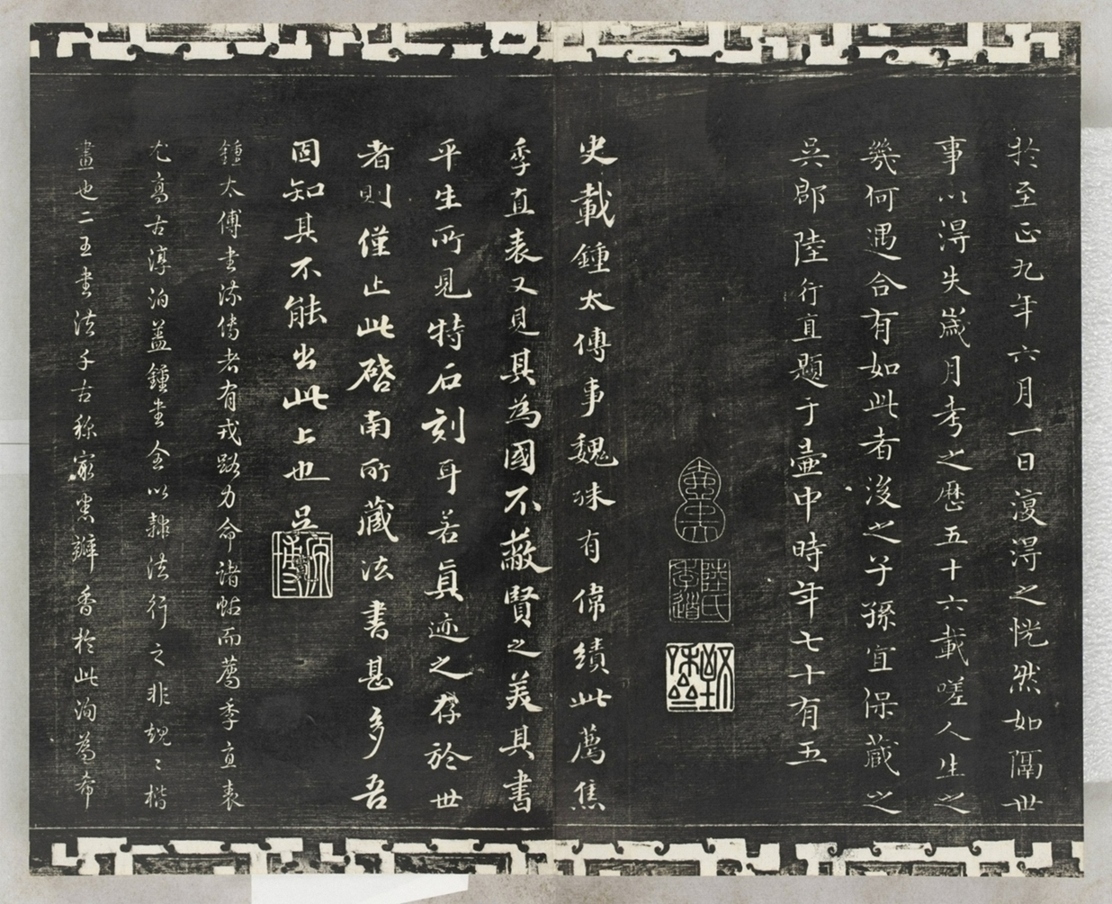 於至正九年六月一日復得之恍然如隔世
事以得失歲月考之歷五十六載嗟人生之
幾何遇合有如此者後之子孫宜保藏之
吳郡陸行直題于壺中時年七十有五
陸氏季道
史載鍾太傅事魏殊有偉績此薦焦
季直表又見其為國不蔽賢之美其書
平生所見特石刻耳若真迹之存於世
者則僅止此啓南所藏法書甚多吾
固知其不能出此上也吳
原博
鍾太傅書流傳者有戎路力命諸帖而薦季直表
尤高古淳泊蓋鍾書全以隸法行之非規〻楷
畫也二王書法千古稱宗悉瓣香於此洵為希